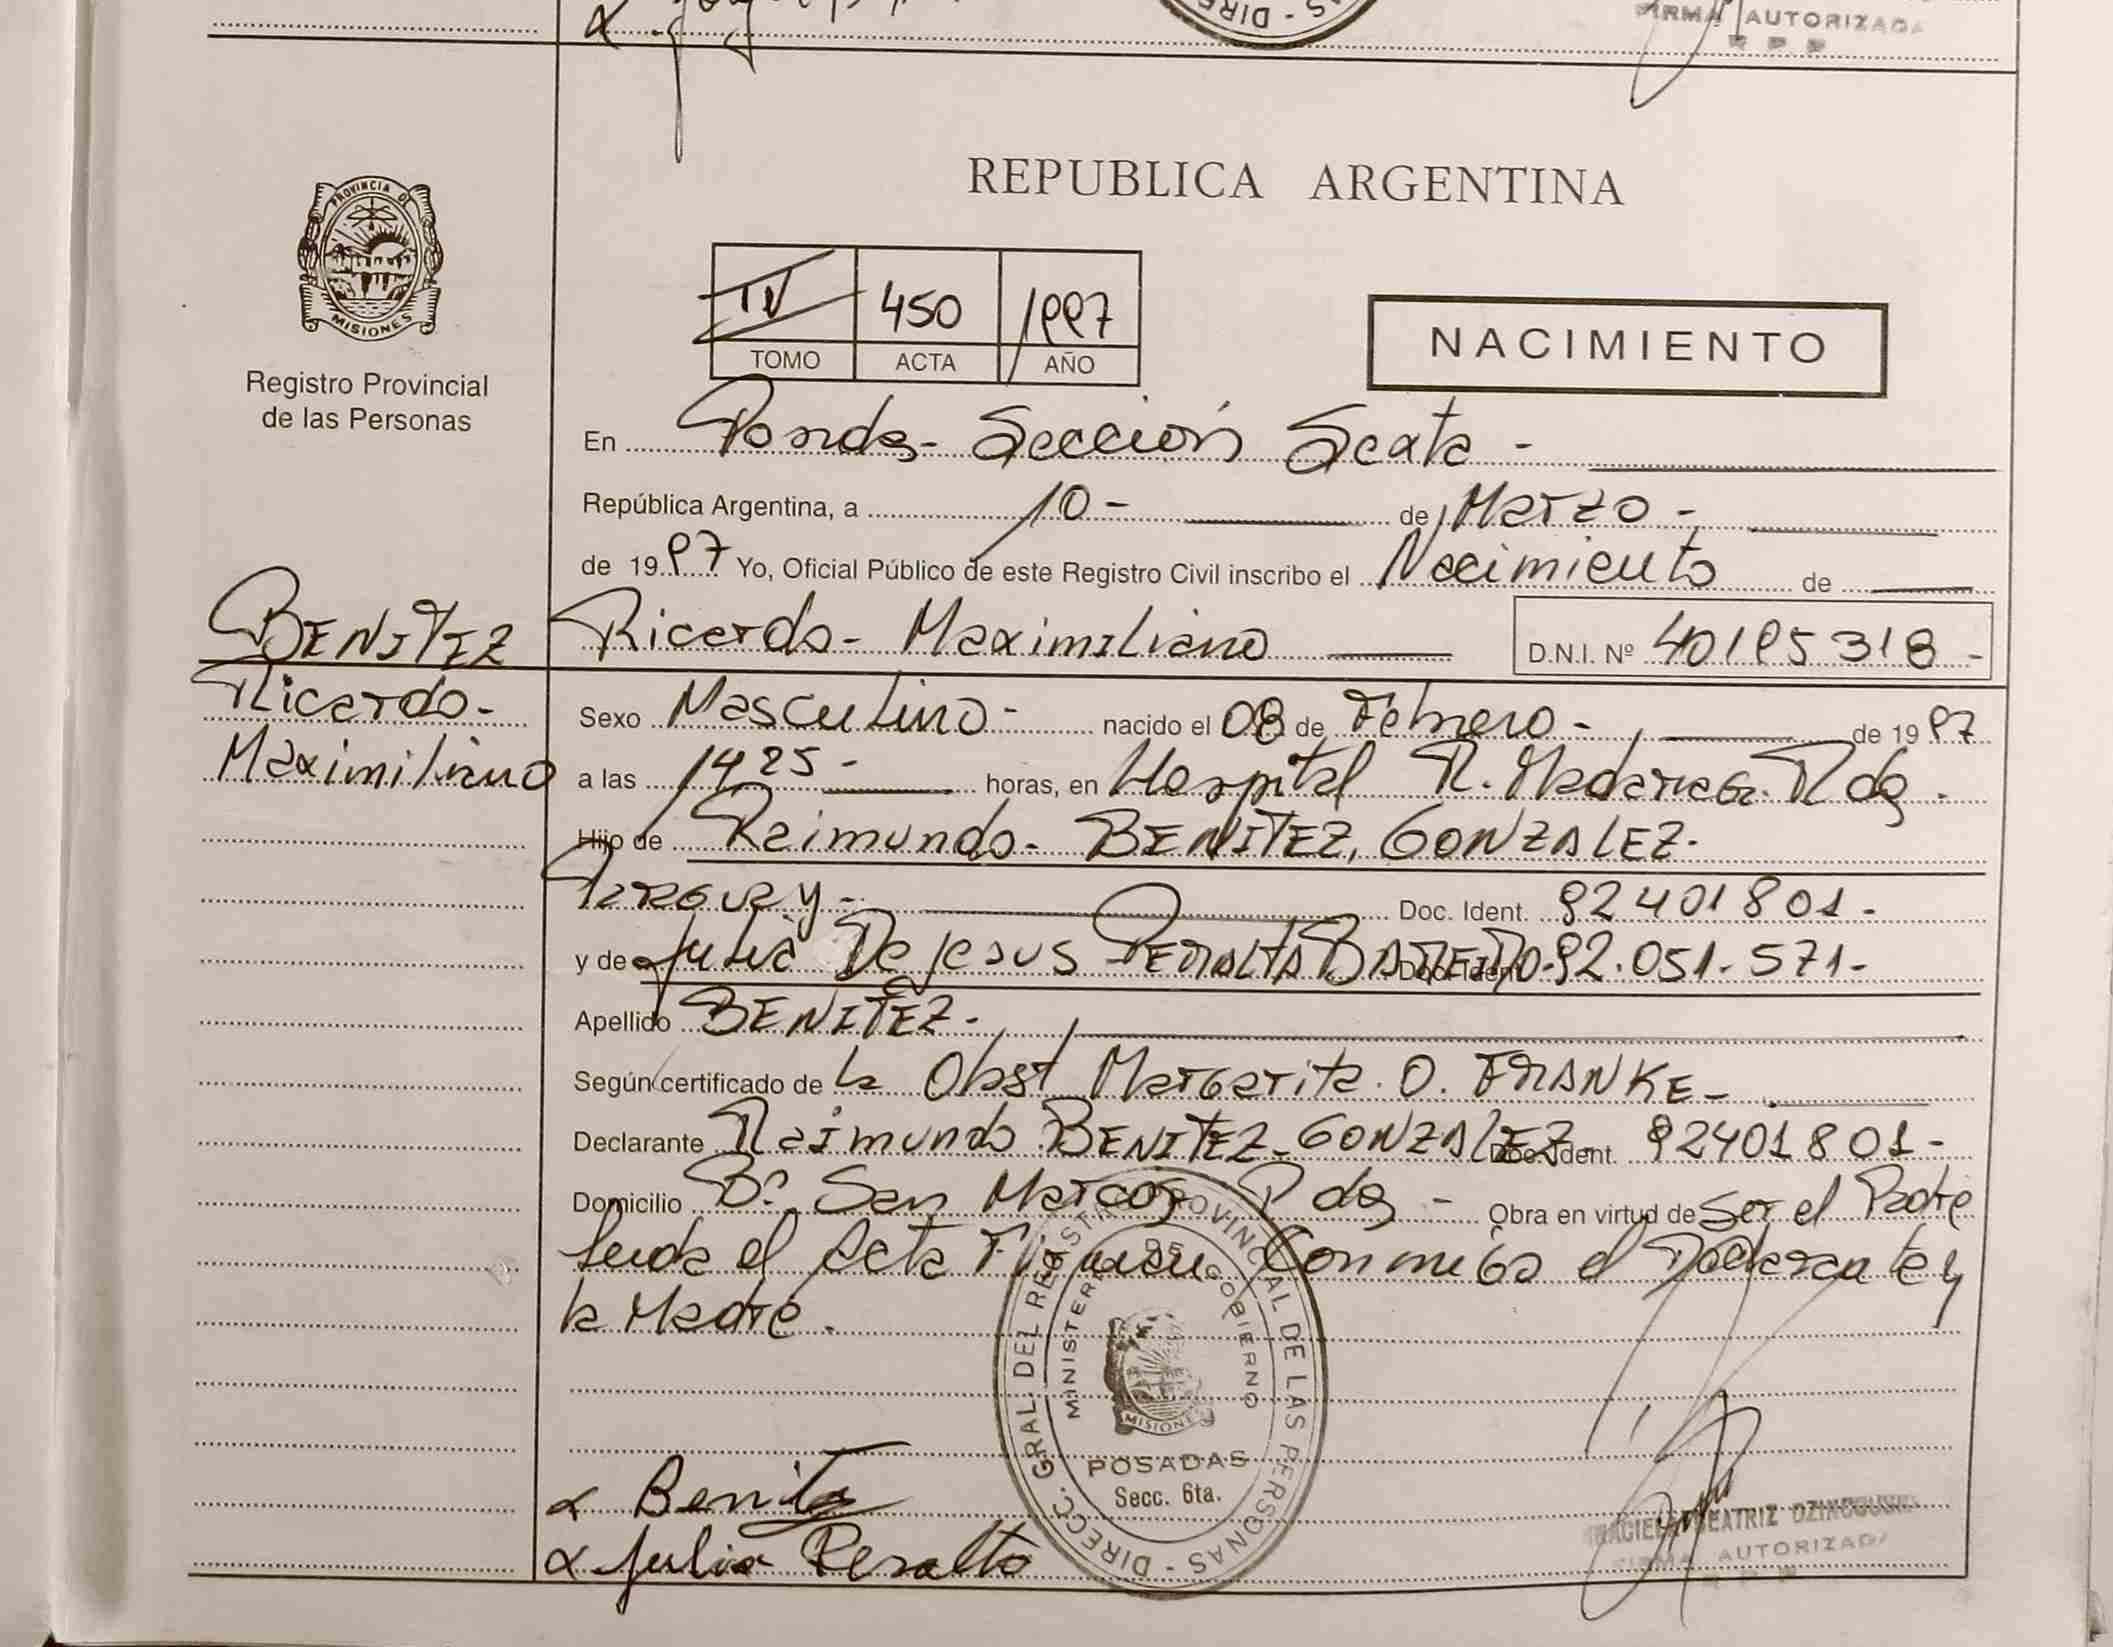 FIRMA AUTORIZADA
R P P
PROVINCIA DE
MISIONES
Registro Provincial
de las Personas
REPUBLICA ARGENTINA
IV 450 1997
TOMO ACTA AÑO
NACIMIENTO
En Posadas - Sección Sexta -
República Argentina, a 10 - de Marzo -
de 1997 Yo, Oficial Público de este Registro Civil inscribo el Nacimiento de
BENITEZ Ricardo - Maximiliano D.N.I. Nº 40195318 -
Ricardo - Sexo Masculino - nacido el 08 de Febrero - de 1997
Maximiliano a las 1425 - horas, en Hospital R. Madariaga. Pdas.
Hijo de Raimundo - BENITEZ, GONZALEZ.
Doc. Ident. 92401801 -
y de Julia De Jesus PERALTA BAREIRO - Doc. Ident. 92.051.571 -
Apellido BENITEZ -
Según certificado de la Obst Margarita. O. FRANKE -
Declarante Raimundo BENITEZ - GONZALEZ - Doc. Ident. 92401801 -
Domicilio Bº San Marcos Pdas - Obra en virtud de Ser el Padre
Leida el Acta Firman Conmigo el Declarante y
la Madre.
DIRECC. GRAL DEL REGISTRO PROVINCIAL DE LAS PERSONAS
MINISTERIO DE GOBIERNO
MISIONES
POSADAS
Secc. 6ta.
Benitez
Julia Peralta
BEATRIZ
FIRMA AUTORIZADA